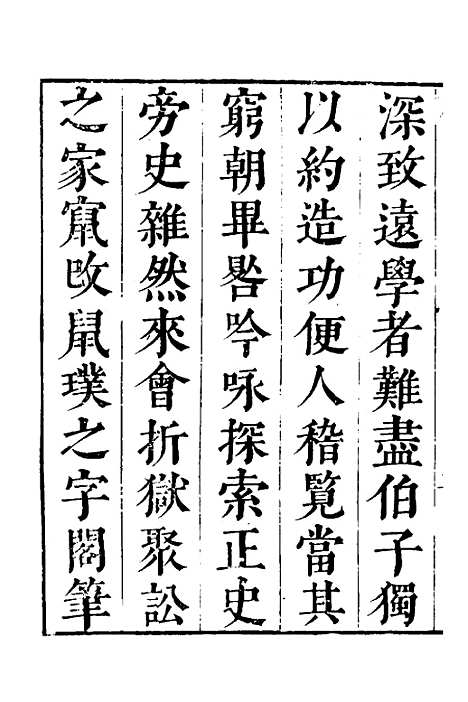 深致遠學者難盡伯子獨
以約造功便人稽覽當其
窮朝畢晷吟咏探索正史
旁史雜然來會折獄聚訟
之家竄改鼠璞之字閣筆